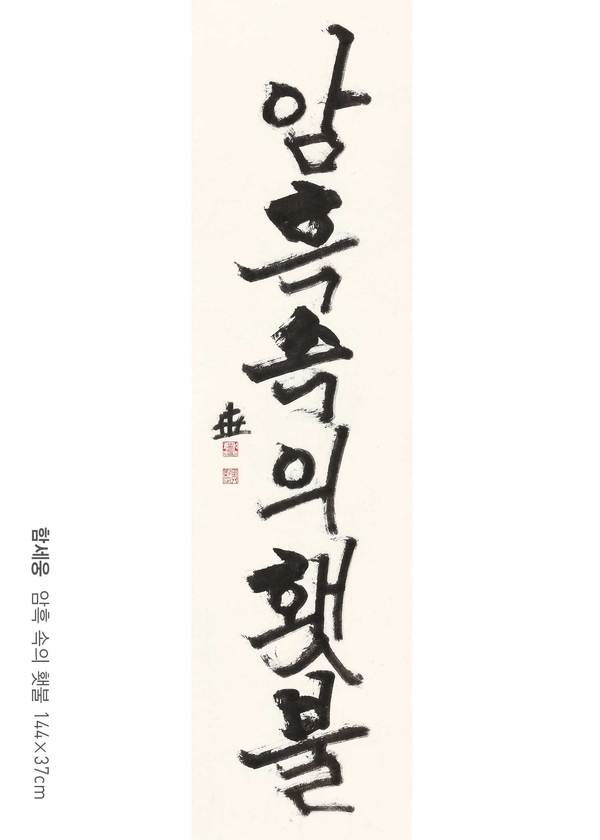 암흑속의횃불
함세웅 암흑 속의 횃불 144×37cm